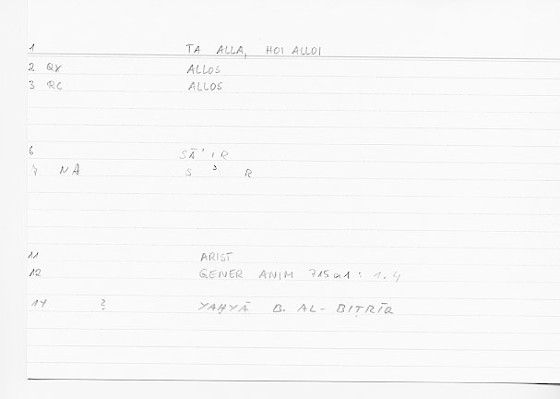 1 TA ALLA, HOI ALLOI
2 QX ALLOS
3 RC ALLOS
6 SĀʾIR
7 NA S ʾ R
11 ARIST
12 GENER ANIM 715a1 : 1.4
14 ? YAḤYĀ B. AL-BIṬRĪQ